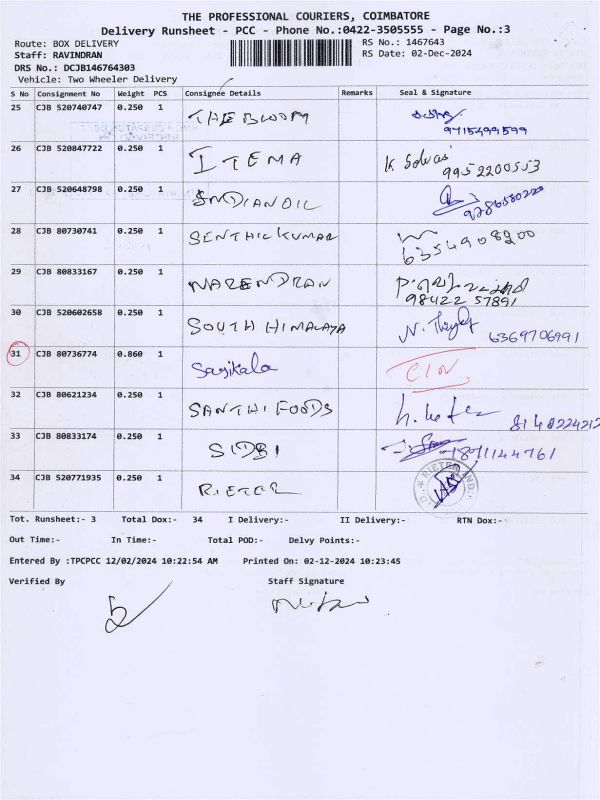 THE PROFESSIONAL COURIERS, COIMBATORE
Delivery Runsheet - PCC - Phone No.:0422-3505555 - Page No.:3
Route: BOX DELIVERY RS No.: 1467643
Staff: RAVINDRAN RS Date: 02-Dec-2024
DRS No.: DCJB146764303
Vehicle: Two Wheeler Delivery
S No Consignment No Weight PCS Consignee Details Remarks Seal & Signature
25 CJB 520740747 0.250 1 THE BLOOM
9715499599
26 CJB 520847722 0.250 1 ITEMA K
9952200553
27 CJB 520648798 0.250 1 INDIANOIL
28 CJB 80730741 0.250 1 SENTHIL KUMAR
6354908200
29 CJB 80833167 0.250 1 NARENDRAN
98422 57891
30 CJB 520602658 0.250 1 SOUTH HIMALAYA N. 6369706991
31 CJB 80736774 0.860 1 Sasikala
32 CJB 80621234 0.250 1 SANTHI FOODS
33 CJB 80833174 0.250 1 SIDBI
34 CJB 520771935 0.250 1 RIETER RIETER
Tot. Runsheet:- 3 Total Dox:- 34 I Delivery:- II Delivery:- RTN Dox:-
Out Time:- In Time:- Total POD:- Delvy Points:-
Entered By :TPCPCC 12/02/2024 10:22:54 AM Printed On: 02-12-2024 10:23:45
Verified By Staff Signature